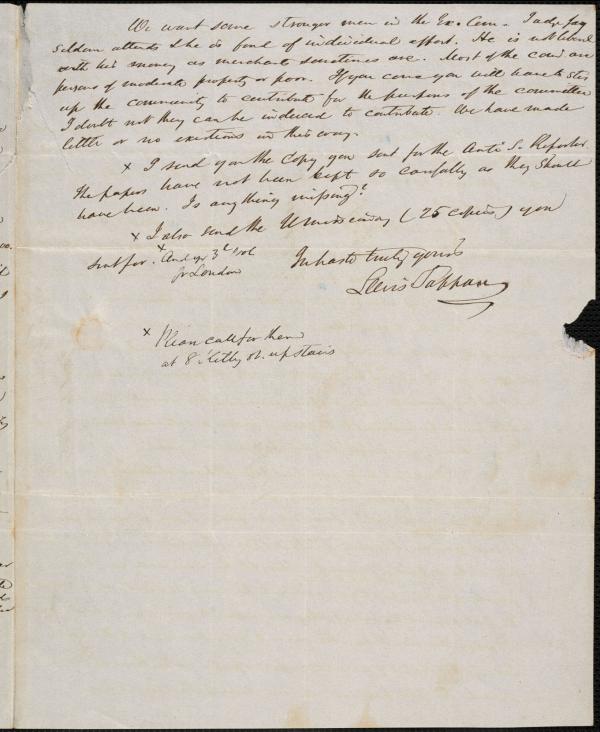 We want some stronger men in the Ex. Com. Judge Jay
seldom attends & he is fond of individual effort. He is not liberal
with his money as merchants sometimes are. Most of the com. are
persons of moderate property or poor. If you come you will have to stir
up the community to contribute for the purposes of the committee
I doubt not they can be induced to contribute. We have made
little or no exertions in this way.
x I send you the copy you sent for the Anti S. Reporter
The papers have not been kept so carefully as they should
have been. Is anything missing?
x I also send the (25 copies) you
sent for. x And yr 3d vol
fr London
In haste truly yours
Lewis Tappan
x Please call for them
at 8 st. up stairs